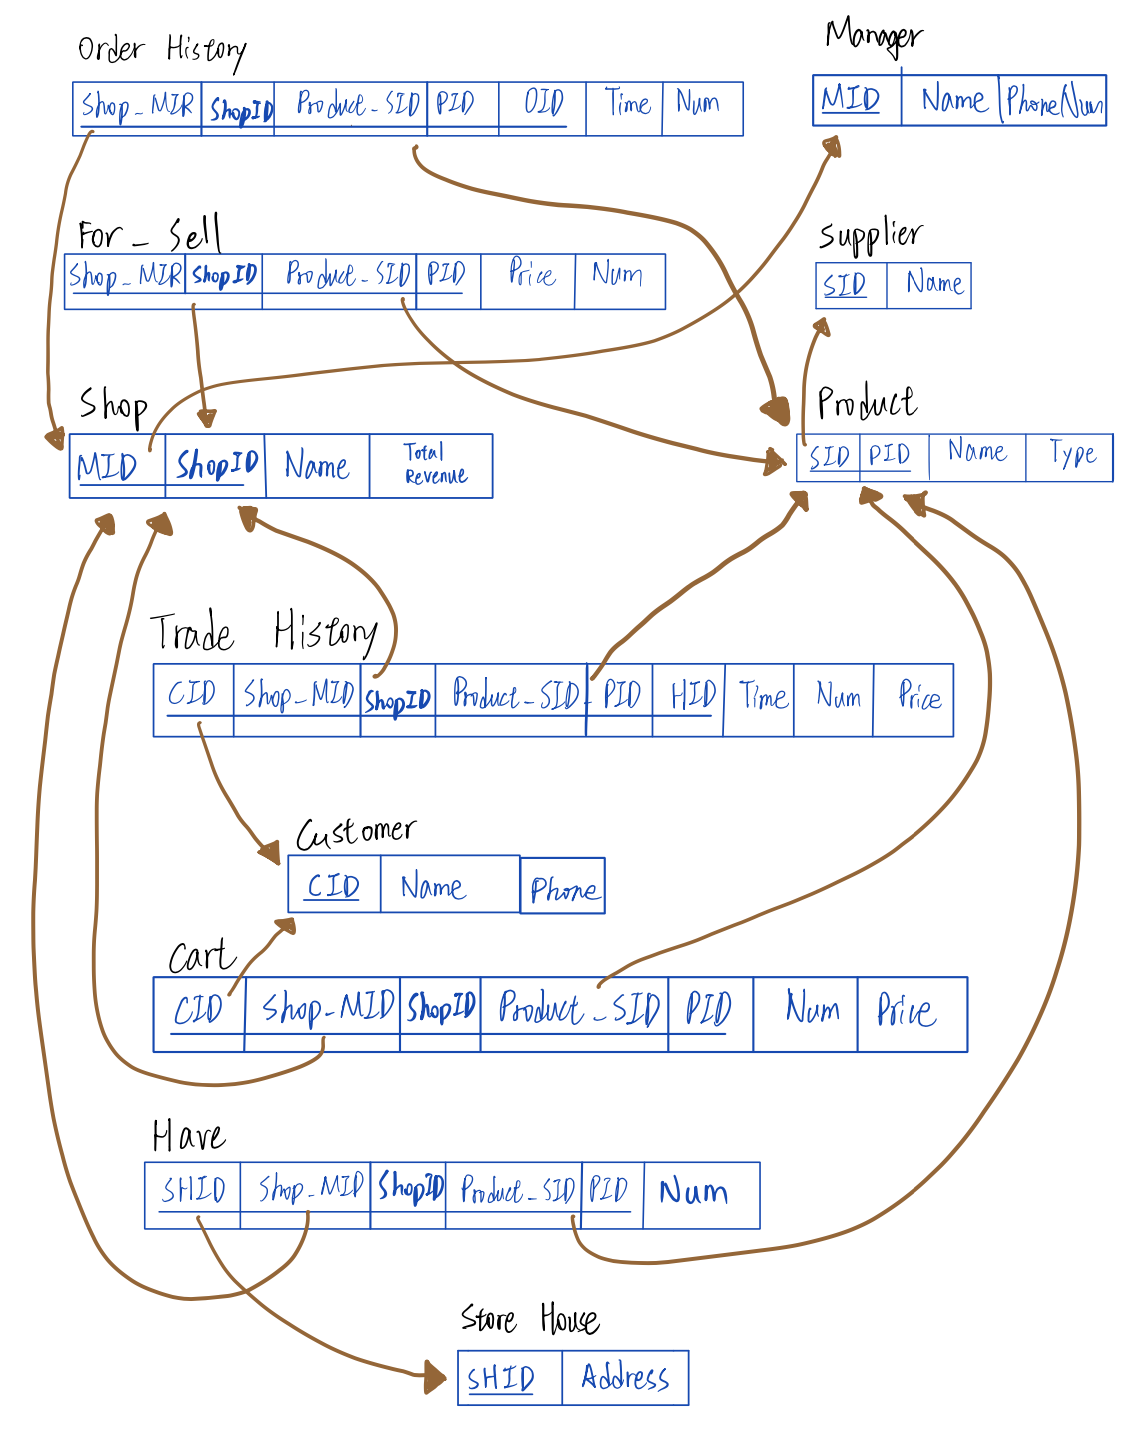 Order History
Shop_MIR ShopID Product_SID PID OID Time Num
Manager
MID Name PhoneNum
For_Sell
Shop_MIR ShopID Product_SID PID Price Num
Supplier
SID Name
Shop
MID ShopID Name Total Revenue
Product
SID PID Name Type
Trade History
CID Shop_MID ShopID Product_SID PID HID Time Num Price
Customer
CID Name Phone
Cart
CID Shop_MID ShopID Product_SID PID Num Price
Have
SHID Shop_MID ShopID Product_SID PID Num
Store House
SHID Address